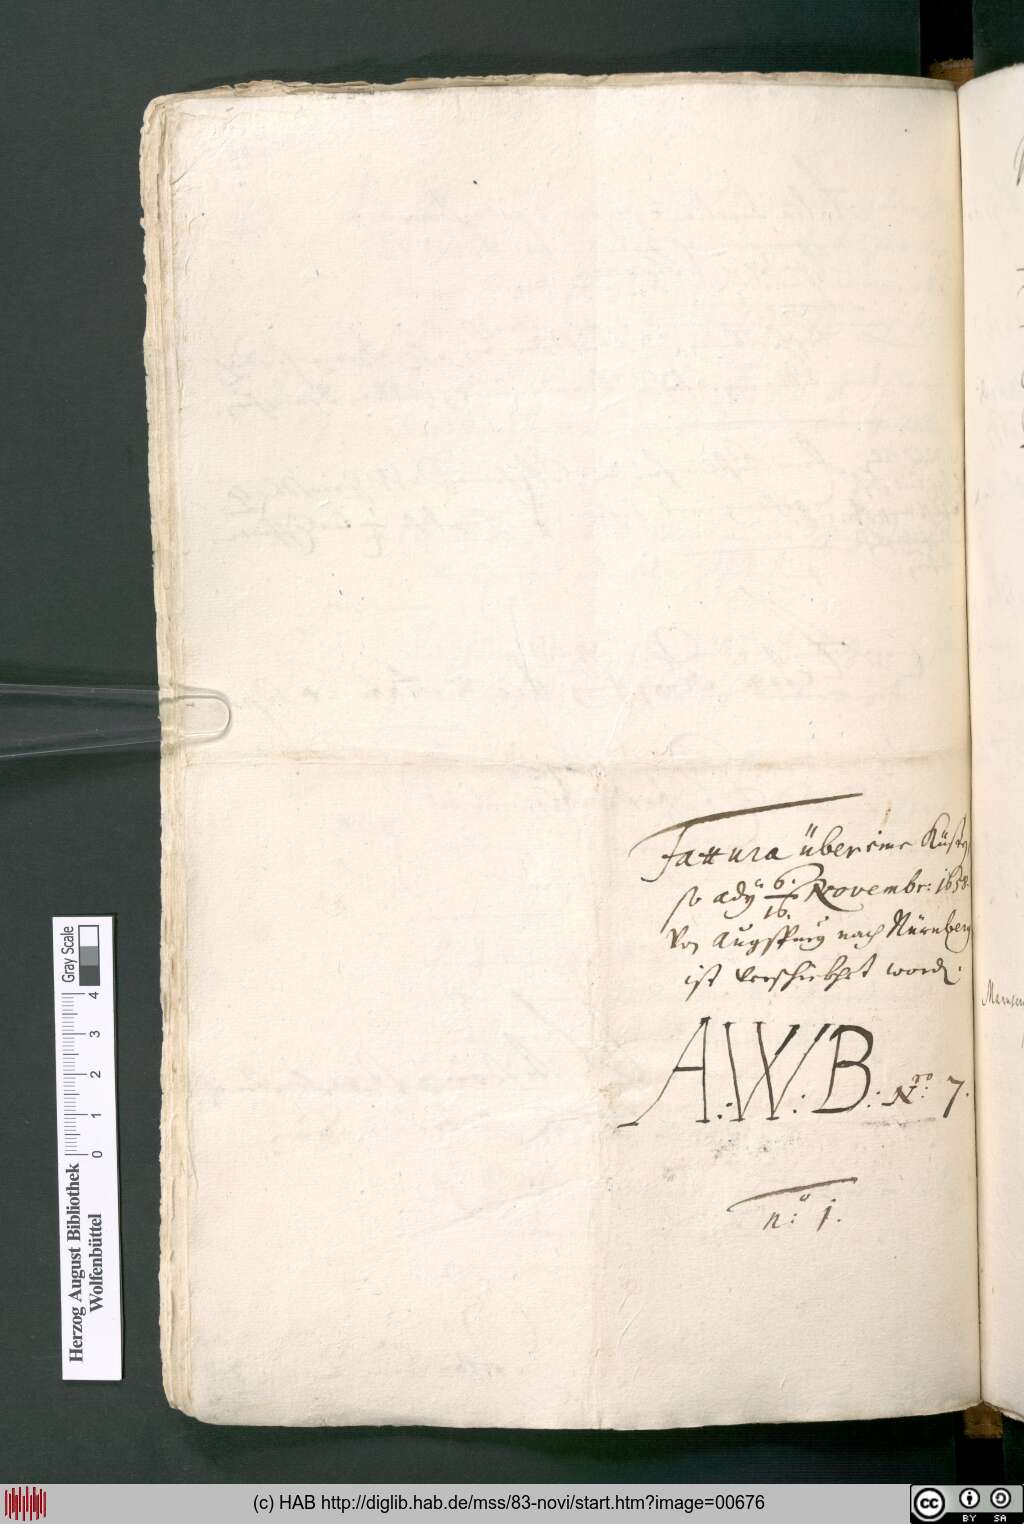 Fattura über eine Küsten
so ady 6./16. Novembr: 1658.
Von Augspurg nach Nürnberg
ist verschickht word.
A:W:B: Nro: 7.
no: 1.
Gray Scale
0 1 2 3 4
Herzog August Bibliothek
Wolfenbüttel
(c) HAB http://diglib.hab.de/mss/83-novi/start.htm?image=00676
cc BY SA